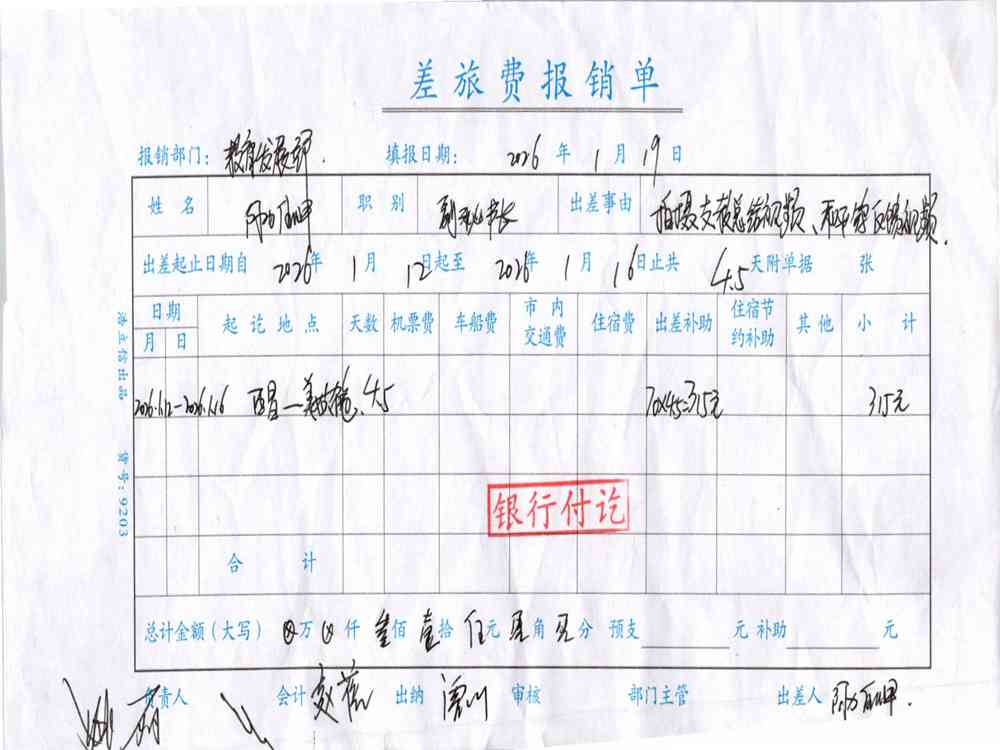 差旅费报销单
报销部门: 教育发展部. 填报日期: 2026 年 1 月 19 日
姓名 职别 副秘书长 出差事由 拍摄支教总结视频、和 反馈视频.
出差起止日期自 2026年 1月 12日起至 2026年 1月 16日止共 4.5 天附单据 张
日期 月 日 起讫地点 天数 机票费 车船费 市内交通费 住宿费 出差补助 住宿节约补助 其他 小计
2026.1.12-2026.1.16 4.5 70×4.5=315元 315元
银行付讫
合计
总计金额(大写) ⊗万 ⊗仟 叁佰 壹拾 伍元 零角 零分 预支 元 补助 元
负责人 会计 出纳 审核 部门主管 出差人
浩立信出品 货号:9203